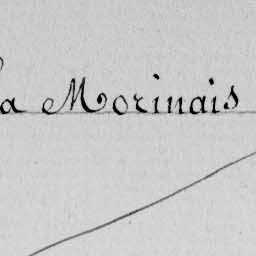 la Morinais